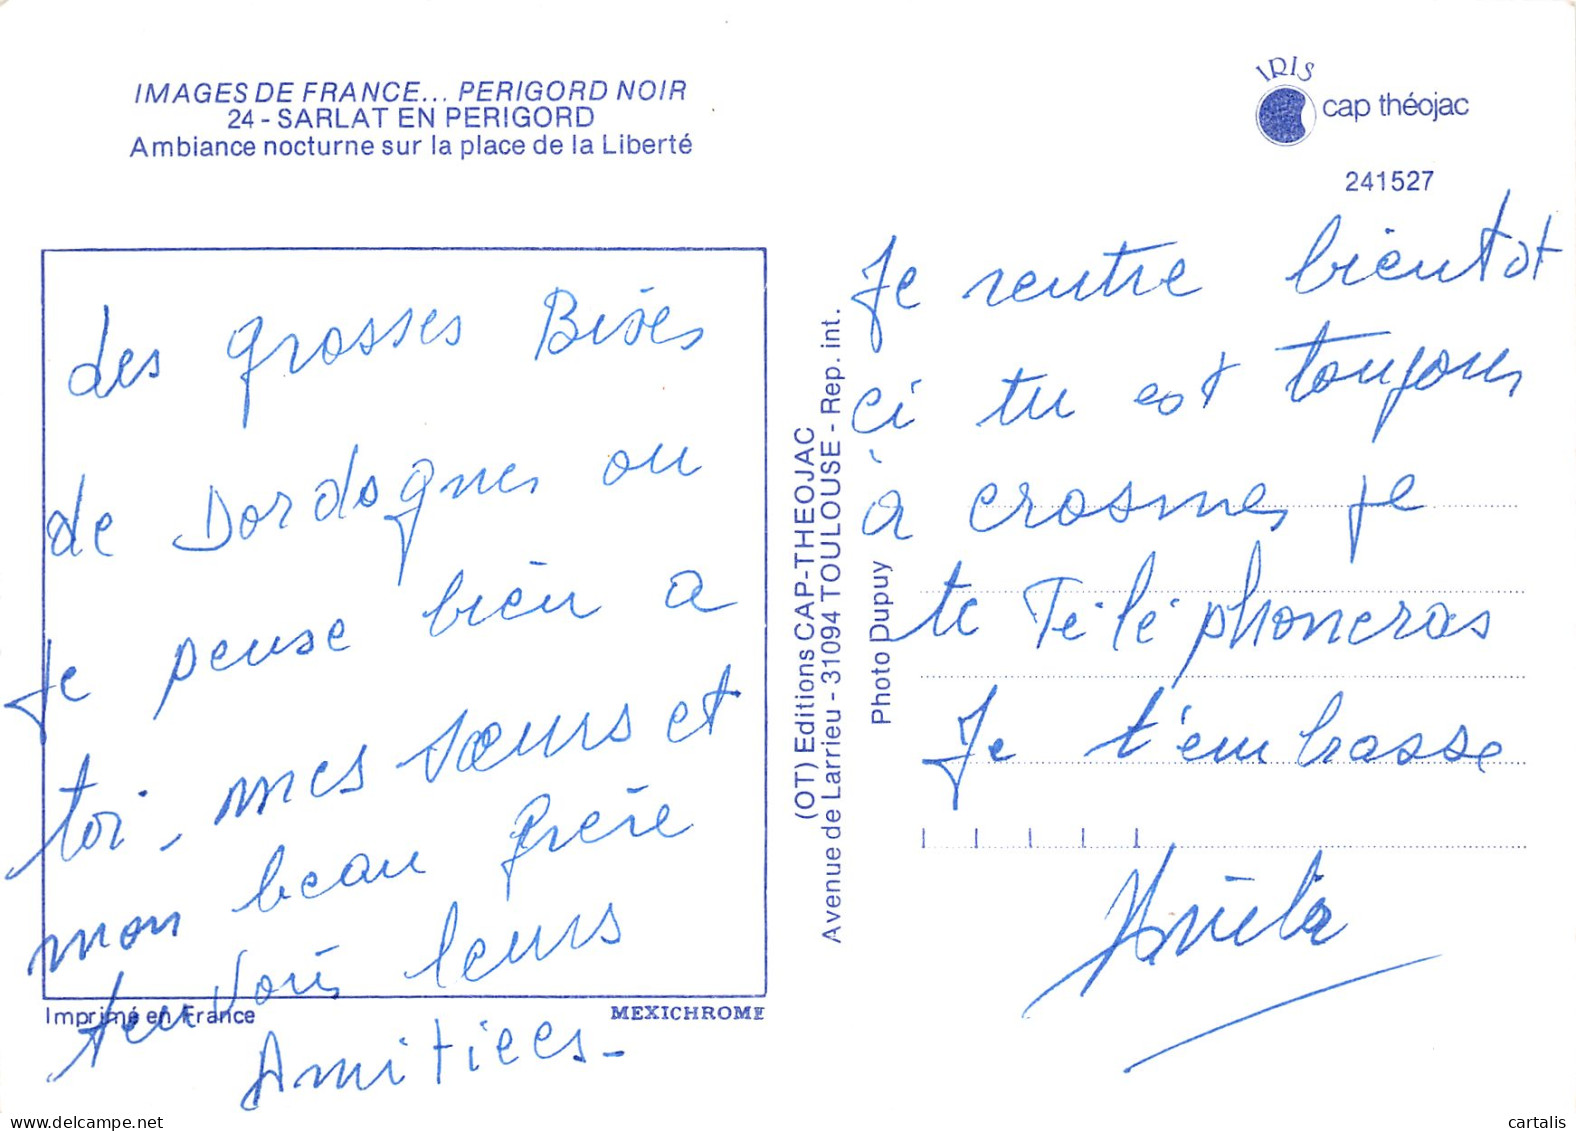 IMAGES DE FRANCE... PERIGORD NOIR
24 - SARLAT EN PERIGORD
Ambiance nocturne sur la place de la Liberté
IRIS
cap théojac
241527
des grosses Bises
de Dordognes ou
Je pense bien a
toi - mes sœurs et
mon beau frère
voies leurs
Amitiees -
Imprimé en France
MEXICHROME
(OT) Editions CAP-THEOJAC
Avenue de Larrieu - 31094 TOULOUSE - Rep. int.
Photo Dupuy
Je rentre bientot
ci tu est toujours
à crosmes je
te Téléphoneras
Je t'embrasse
cartalis
www.delcampe.net